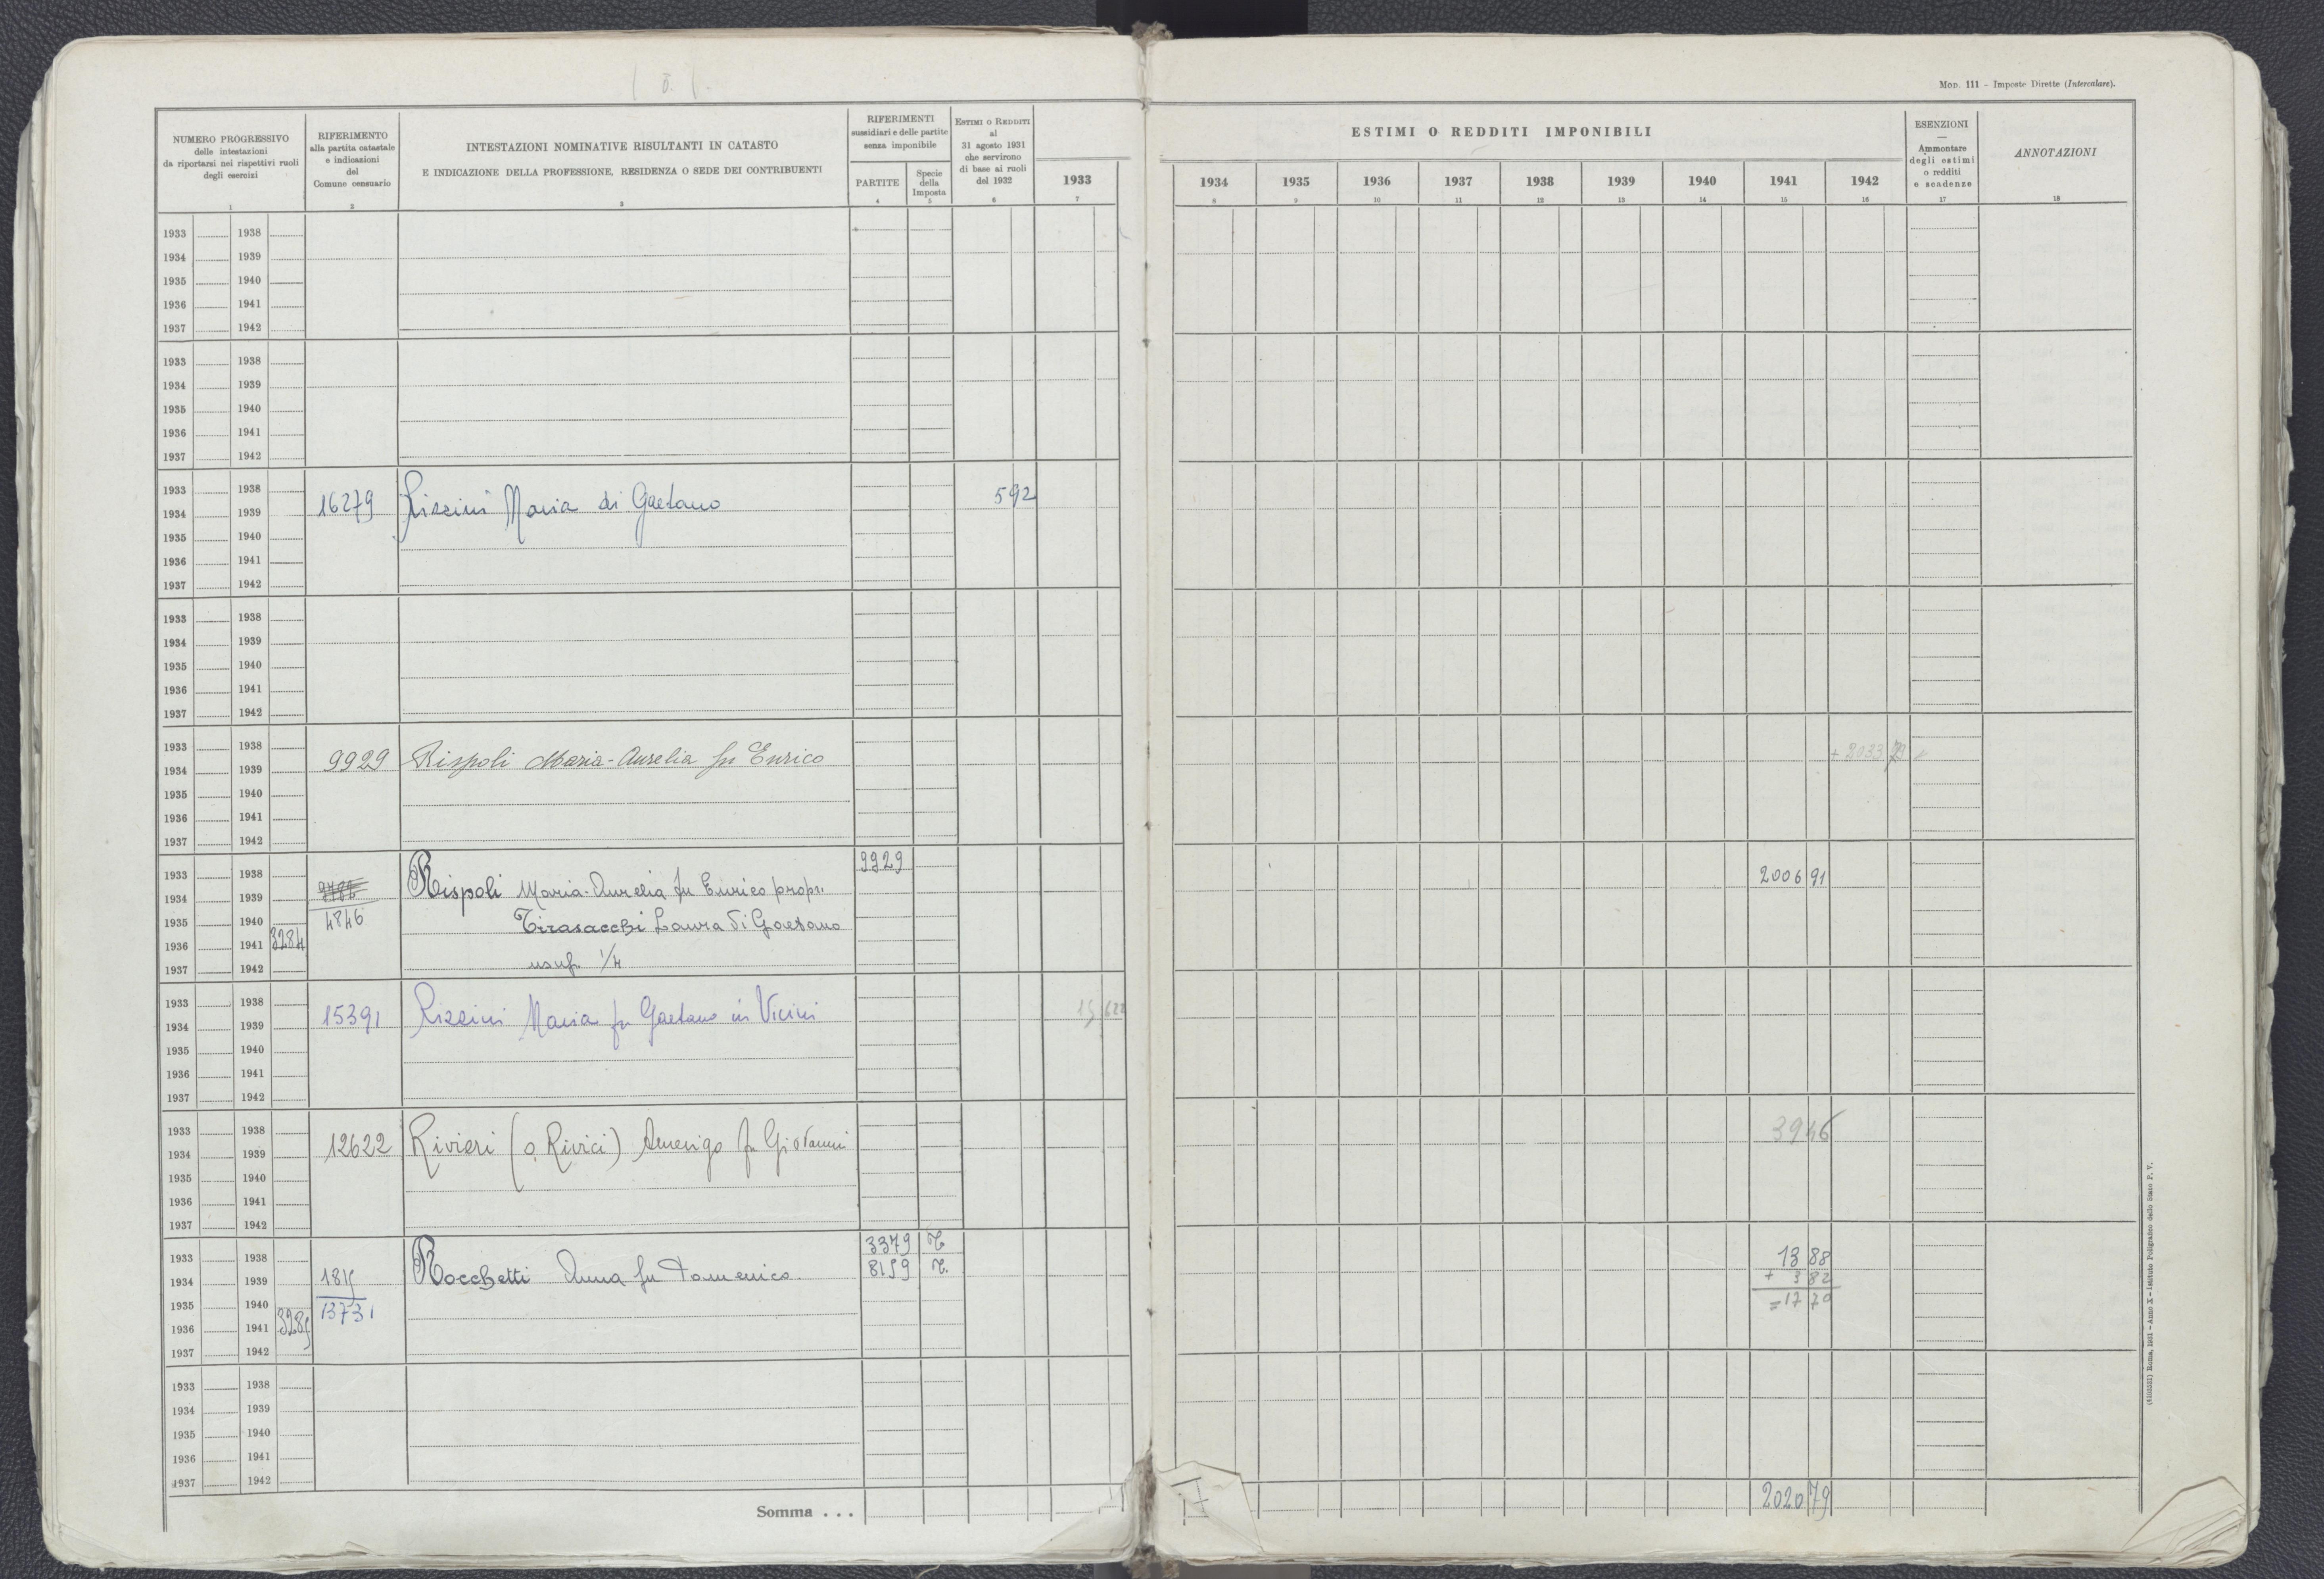 Mod. 111 - Imposte Dirette (Intercalare).
NUMERO PROGRESSIVO
delle intestazioni
da riportarsi nei rispettivi ruoli
degli esercizi
1
RIFERIMENTO
alla partita catastale
e indicazioni
del
Comune censuario
2
INTESTAZIONI NOMINATIVE RISULTANTI IN CATASTO
E INDICAZIONE DELLA PROFESSIONE, RESIDENZA O SEDE DEI CONTRIBUENTI
3
RIFERIMENTI
sussidiari e delle partite
senza imponibile
PARTITE
4
Specie
della
Imposta
5
ESTIMI O REDDITI
al
31 agosto 1931
che servirono
di base ai ruoli
del 1932
6
ESTIMI O REDDITI IMPONIBILI
1933 1934 1935 1936 1937 1938 1939 1940 1941 1942
7 8 9 10 11 12 13 14 15 16
ESENZIONI
—
Ammontare
degli estimi
o redditi
e scadenze
17
ANNOTAZIONI
18
1933 1938
1934 1939
1935 1940
1936 1941
1937 1942
1933 1938
1934 1939
1935 1940
1936 1941
1937 1942
1933 1938
1934 1939 16279 Rizzini Maria di Gaetano 592
1935 1940
1936 1941
1937 1942
1933 1938
1934 1939
1935 1940
1936 1941
1937 1942
1933 1938
1934 1939 9929 Rispoli Maria-Aurelia fu Enrico + 2033
1935 1940
1936 1941
1937 1942
1933 1938 9929 2006 91
1934 1939 Rispoli Maria-Aurelia fu Enrico propr.
1935 1940 4846 Tirasacchi Laura di Gaetano
1936 1941 3284
1937 1942 usuf. 1/4
1933 1938
1934 1939 15391 Rizzini Maria fu Gaetano in Vicini 15 622
1935 1940
1936 1941
1937 1942
1933 1938
1934 1939 12622 Rivieri (o Rivici) Amerigo fu Giovanni 3946
1935 1940
1936 1941
1937 1942
3379 T
1933 1938 8159 T. 13 88
1934 1939 1815 Rocchetti Anna fu Domenico. + 3 82
1935 1940 13731 = 17 70
1936 1941 3285
1937 1942
1933 1938
1934 1939
1935 1940
1936 1941
1937 1942
Somma . . . 2020 79
(4100581) Roma, 1931 - Anno X - Istituto Poligrafico dello Stato P. V.